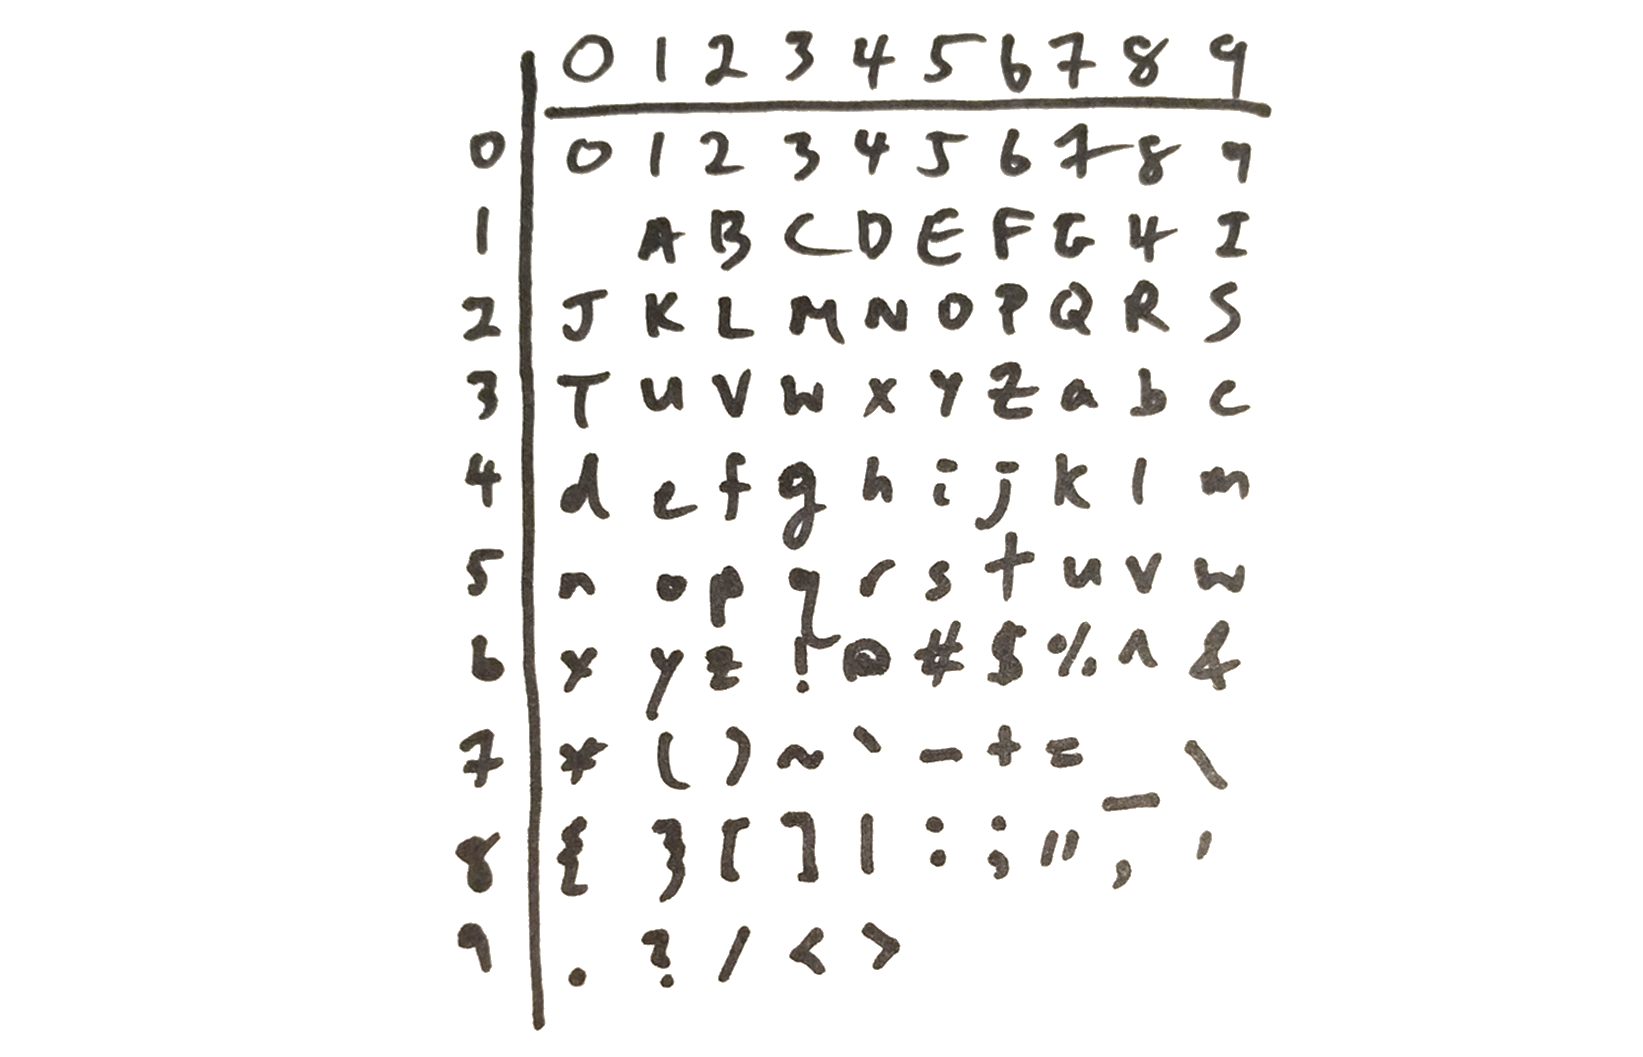 0 1 2 3 4 5 6 7 8 9
0 0 1 2 3 4 5 6 7 8 9
1 A B C D E F G H I
2 J K L M N O P Q R S
3 T U V W X Y Z a b c
4 d e f g h i j k l m
5 n o p q r s t u v w
6 x y z ! @ # $ % ^ &
7 * ( ) ~ ` - + = _ \
8 { } [ ] | : ; " , '
9 . ? / < >